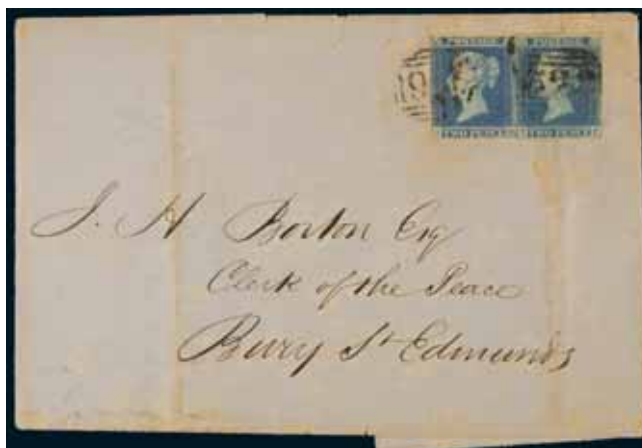 POSTAGE POSTAGE
TWO PENCE TWO PENCE
J. H Borton Esq
Clerk of the Peace
Bury St Edmunds